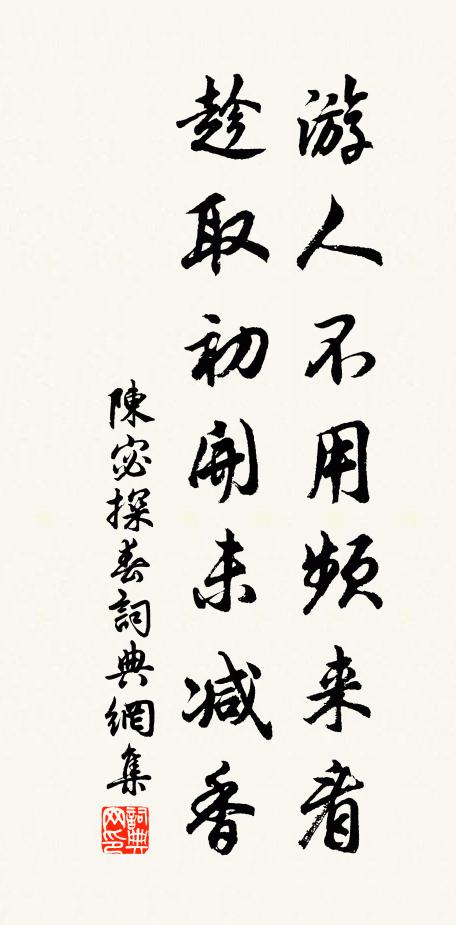 游人不用頻来看
趁取初開未減香
陳宓探春詞典網集
詞典网印